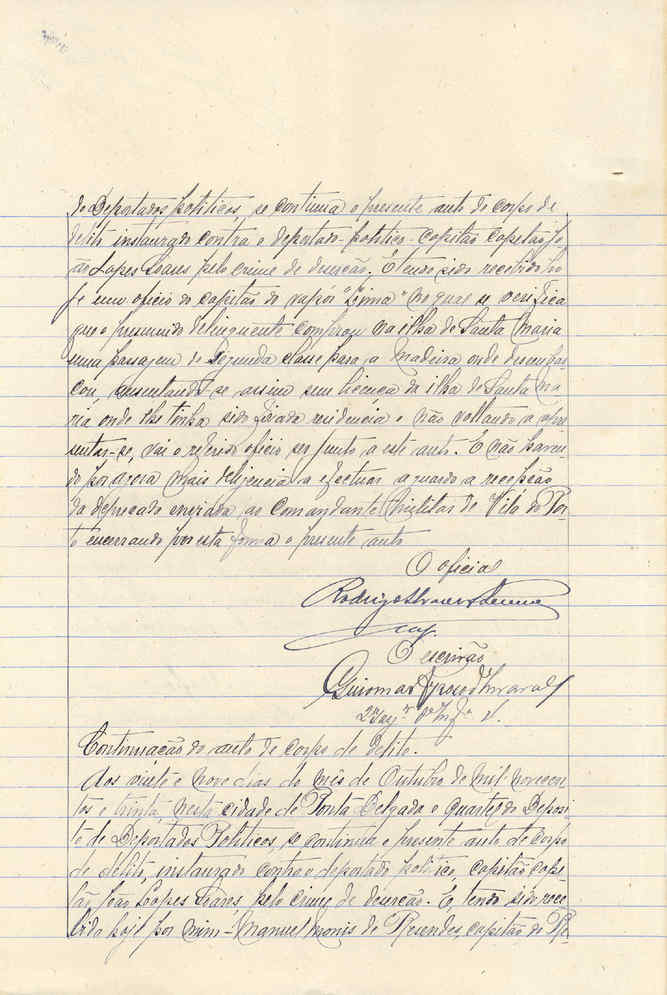 de Deportados politicos, se continua o presente auto de corpo de
delito instaurado contra o deportado-politico-capitão capelão Jo-
ão Lopes Soares pelo crime de deserção. E tendo sido recebido ho
je um oficio do capitão do vapôr "Lima" no qual se verifica
que o presumido delinquente comprou na ilha de Santa Maria
uma passagem de segunda classe para a Madeira onde desembar-
cou, ausentando-se assim sem licença da ilha de Santa Ma
ria onde lhe tinha sido fixada residencia e não voltando a apre
sentar-se, vai o referido oficio ser junto a este auto. E não haven-
do por ora mais deligencia a efectuar aguardo a recepção
da deprecada enviada ao Comandante Militar de Vila do Por-
to encerrando por esta forma o presente auto
O oficial
Rodrigo
cap.
O escrivão
Guiomar d'Amaral
2º Sarg.
Continuação do auto de corpo de delito.
Aos vinte e nove dias do mês de Outubro de mil novecen-
tos e trinta, nesta cidade de Ponta Delgada e quartel do Deposi-
to de Deportados Politicos, se continua o presente auto de corpo
de delito, instaurado contra o deportado politico, capitão cape-
lão João Lopes Soares, pelo crime de deserção. E, tendo sido rece-
bida hoje por mim-Manuel Monis de Resendes, capitão do Re-